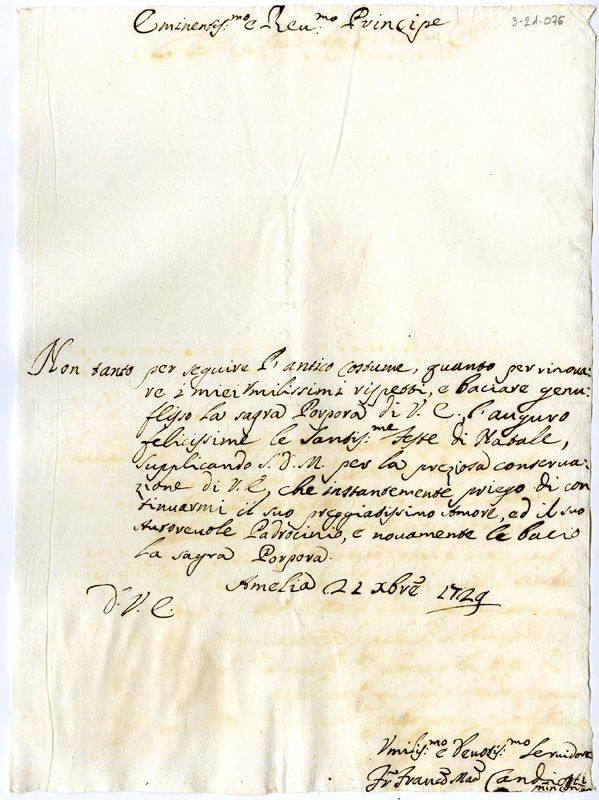 Eminentis:mo e Reu:mo Principe
3-21-076
Non tanto per seguire l'antico costume, quanto per rinoua-
re i miei Vmilissimi rispetti, e baciare genu-
flesso la sagra Porpora di V. E., l'auguro
felicissime le Santis:me feste di Natale,
supplicando S. D. M. per la preziosa conserua-
zione di V. E, che instantemente priego di con
tinuarmi il suo preggiatissimo Amore, ed il suo
Autoreuole Padrocinio, e nouamente le bacio
la sagra Porpora.
Amelia 21 Xbre 1729
D. V. E.
Vmilis:mo e Deuotis:mo Seruidore
Fr Franco Ma